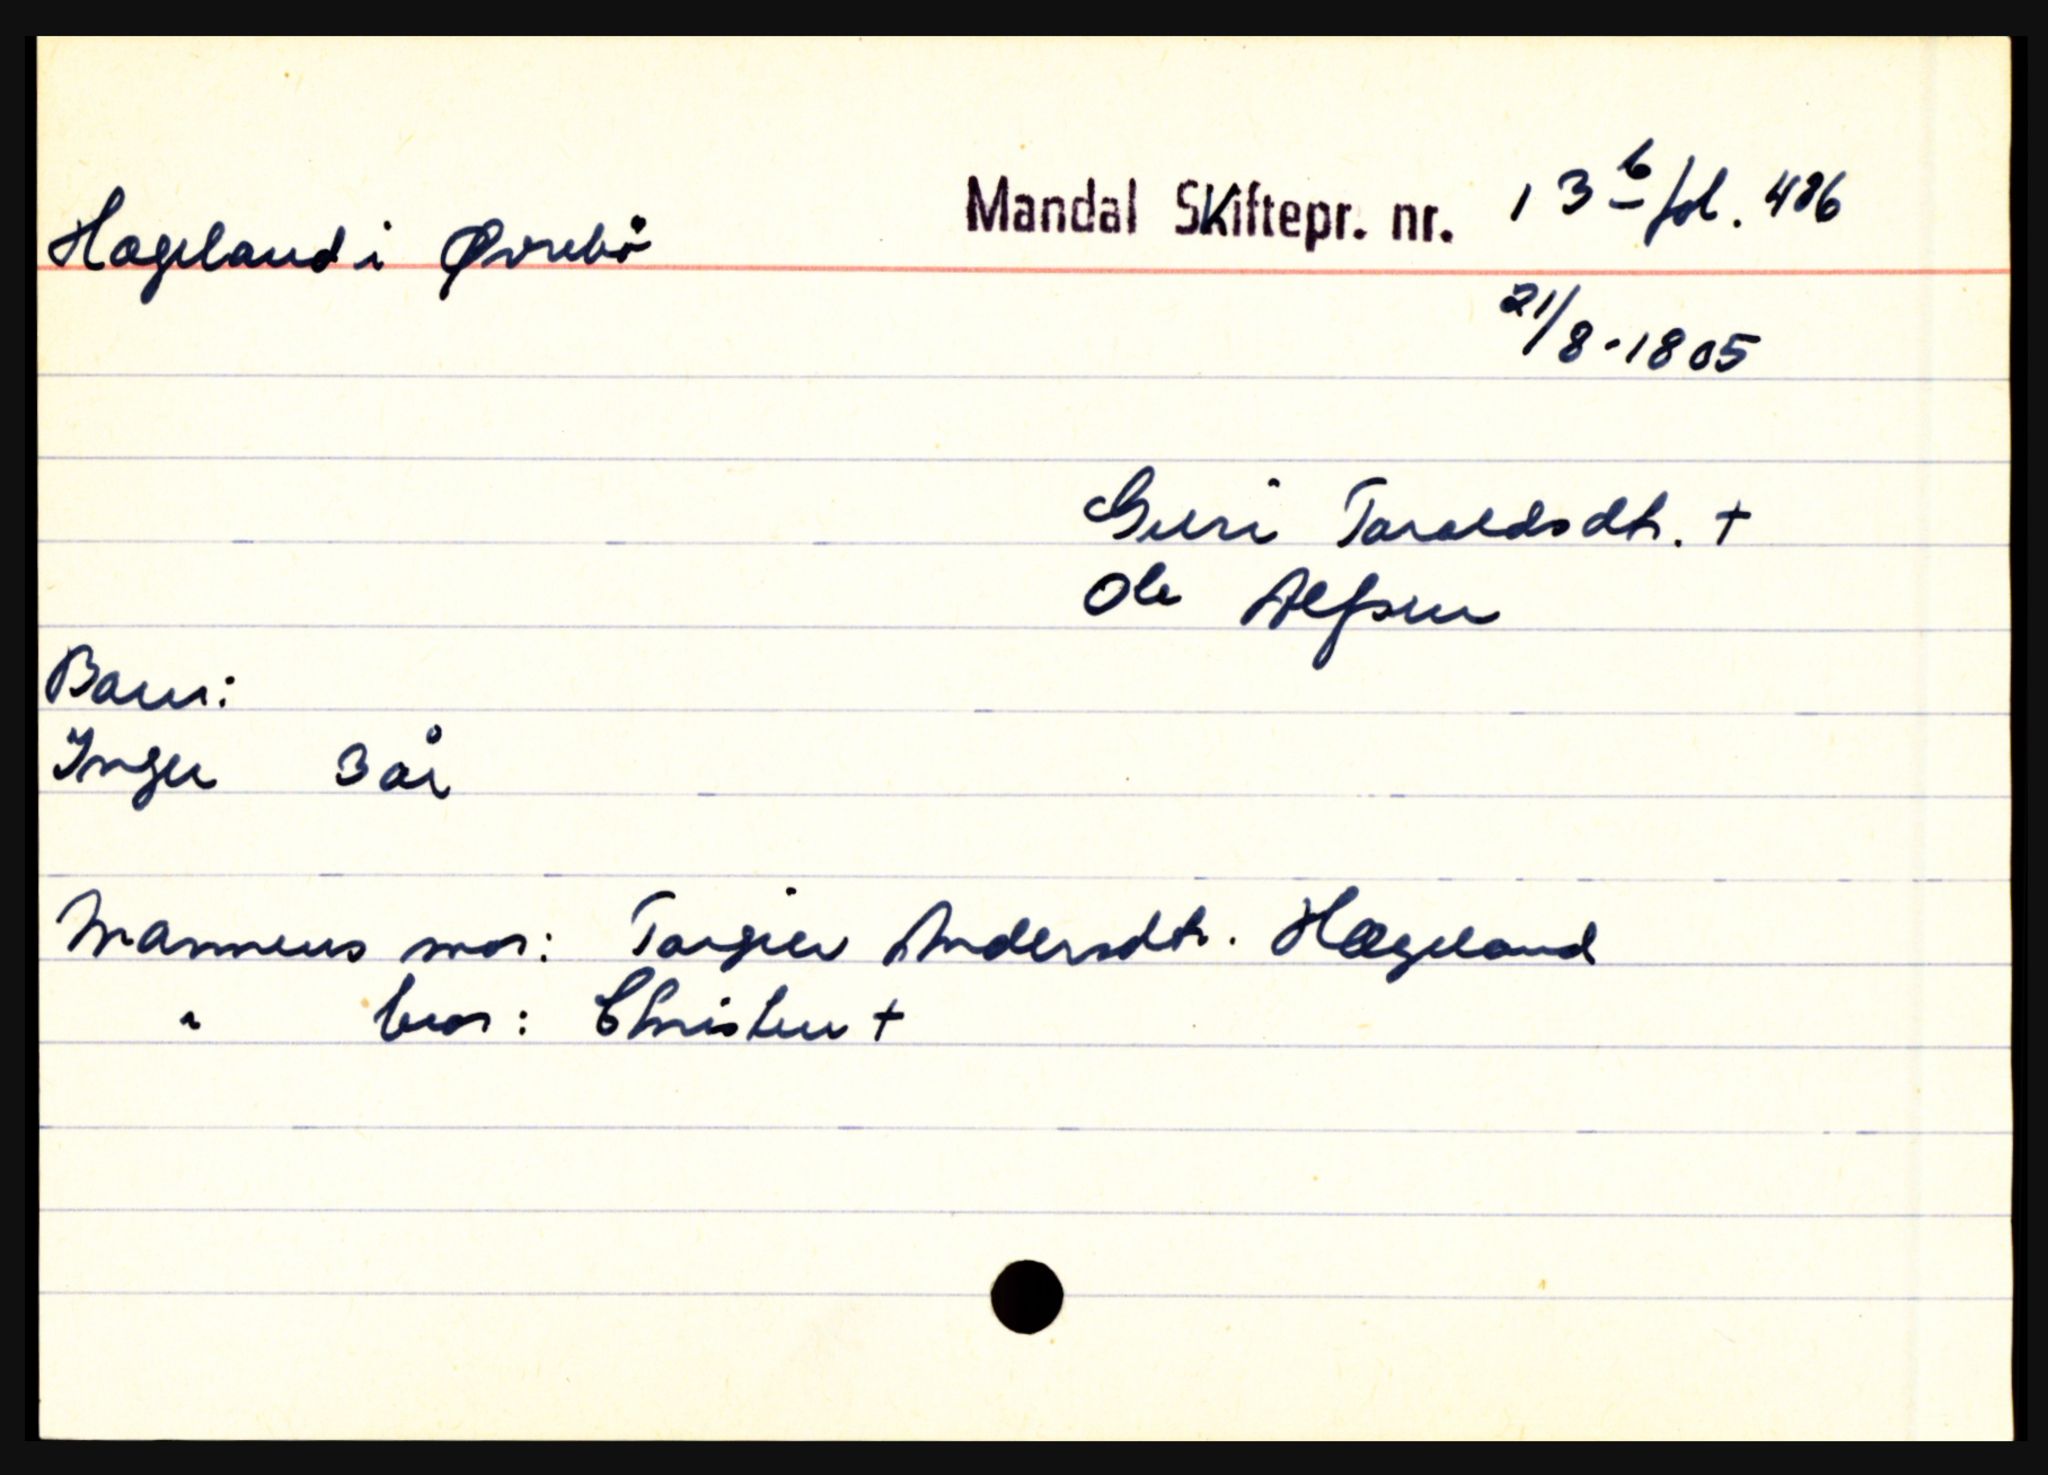 Mandal Skiftepr. nr. 13 b fol. 486
Hægeland i Øvrebö
21/8-1805
Guri Taraldsdtr. +
Ole Alfsen
Barn:
Inger 3 år
Mannens mor: Torgier Andersdtr. Hægeland
" bror: Christen +